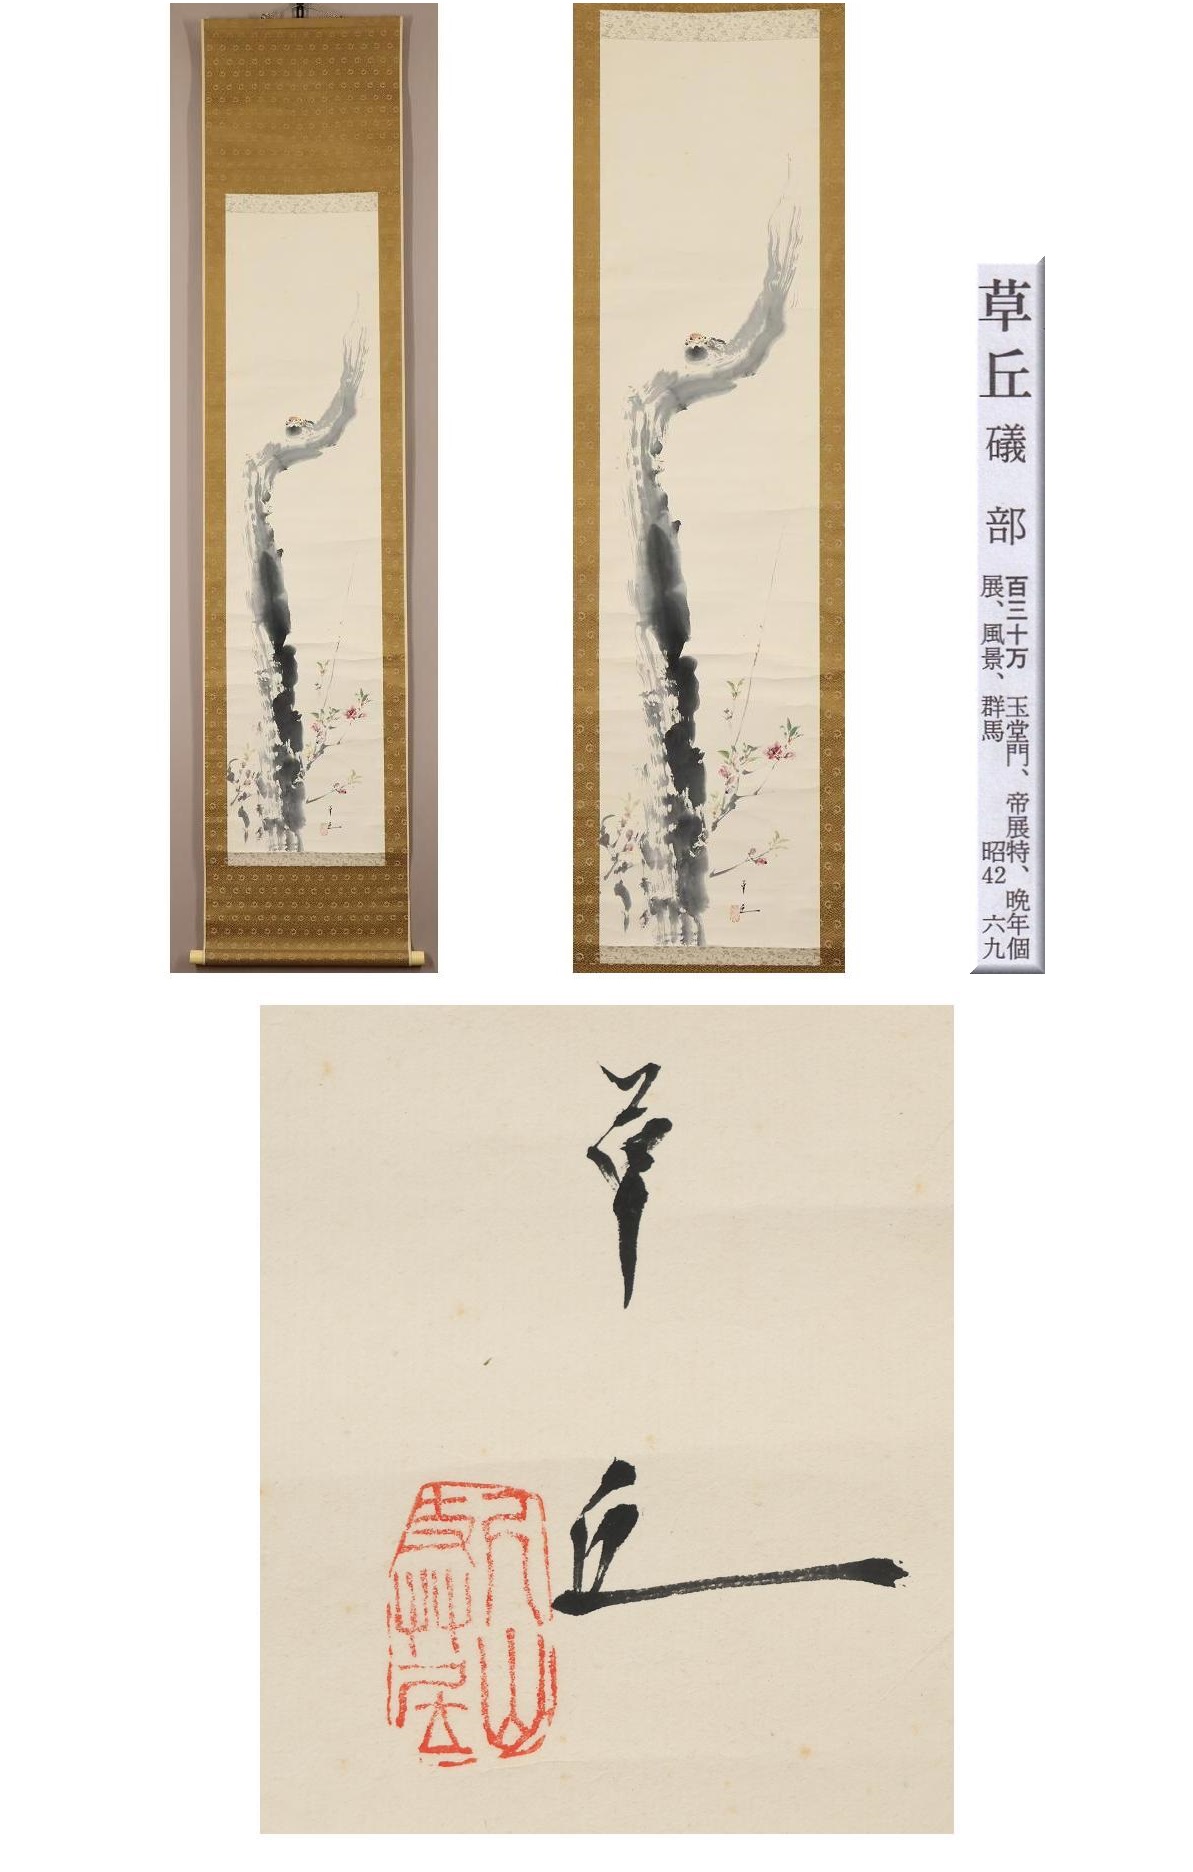 草丘 礒部 百三十万 玉堂門、帝展特、晩年個
展、風景、群馬 昭42 六九
草丘